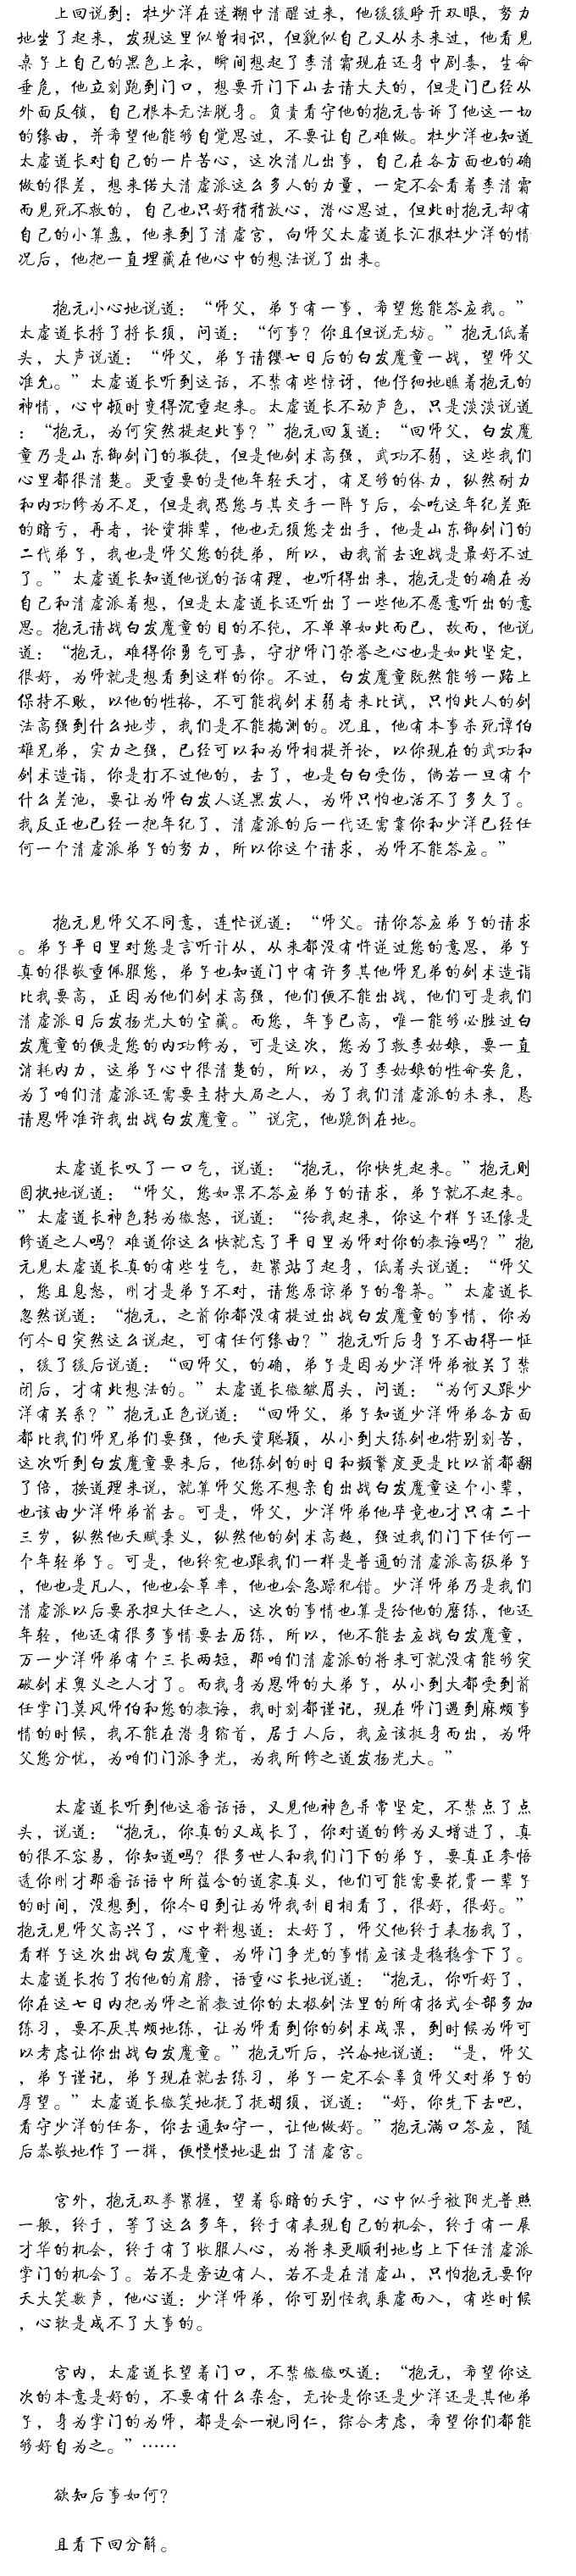 上回说到：杜少洋在迷糊中清醒过来，他缓缓睁开双眼，努力
地坐了起来，发现这里似曾相识，但貌似自己又从未来过，他看见
桌子上自己的黑色上衣，瞬间想起了李清霜现在还身中剧毒，生命
垂危，他立刻跑到门口，想要开门下山去请大夫的，但是门已经从
外面反锁，自己根本无法脱身。负责看守他的抱元告诉了他这一切
的缘由，并希望他能够自觉思过，不要让自己难做。杜少洋也知道
太虚道长对自己的一片苦心，这次清儿出事，自己在各方面也的确
做的很差，想来偌大清虚派这么多人的力量，一定不会看着李清霜
而见死不救的，自己也只好稍稍放心，潜心思过，但此时抱元却有
自己的小算盘，他来到了清虚宫，向师父太虚道长汇报杜少洋的情
况后，他把一直埋藏在他心中的想法说了出来。
抱元小心地说道：“师父，弟子有一事，希望您能答应我。”
太虚道长捋了捋长须，问道：“何事？你且但说无妨。”抱元低着
头，大声说道：“师父，弟子请缨七日后的白发魔童一战，望师父
准允。”太虚道长听到这话，不禁有些惊讶，他仔细地瞧着抱元的
神情，心中顿时变得沉重起来。太虚道长不动声色，只是淡淡说道
：“抱元，为何突然提起此事？”抱元回复道：“回师父，白发魔
童乃是山东御剑门的叛徒，但是他剑术高强，武功不弱，这些我们
心里都很清楚。更重要的是他年轻天才，有足够的体力，纵然耐力
和内功修为不足，但是我恐您与其交手一阵子后，会吃这年纪差距
的暗亏，再者，论资排辈，他也无须您老出手，他是山东御剑门的
二代弟子，我也是师父您的徒弟，所以，由我前去迎战是最好不过
了。”太虚道长知道他说的话有理，也听得出来，抱元是的确在为
自己和清虚派着想，但是太虚道长还听出了一些他不愿意听出的意
思。抱元请战白发魔童的目的不纯，不单单如此而已，故而，他说
道：“抱元，难得你勇气可嘉，守护师门荣誉之心也是如此坚定，
很好，为师就是想看到这样的你。不过，白发魔童既然能够一路上
保持不败，以他的性格，不可能找剑术弱者来比试，只怕此人的剑
法高强到什么地步，我们是不能揣测的。况且，他有本事杀死谭伯
雄兄弟，实力之强，已经可以和为师相提并论，以你现在的武功和
剑术造诣，你是打不过他的，去了，也是白白受伤，倘若一旦有个
什么差池，要让为师白发人送黑发人，为师只怕也活不了多久了。
我反正也已经一把年纪了，清虚派的后一代还需靠你和少洋已经任
何一个清虚派弟子的努力，所以你这个请求，为师不能答应。”
抱元见师父不同意，连忙说道：“师父。请你答应弟子的请求
。弟子平日里对您是言听计从，从来都没有忤逆过您的意思，弟子
真的很敬重佩服您，弟子也知道门中有许多其他师兄弟的剑术造诣
比我要高，正因为他们剑术高强，他们便不能出战，他们可是我们
清虚派日后发扬光大的宝藏。而您，年事已高，唯一能够必胜过白
发魔童的便是您的内功修为，可是这次，您为了救李姑娘，要一直
消耗内力，这弟子心中很清楚的，所以，为了李姑娘的性命安危，
为了咱们清虚派还需要主持大局之人，为了我们清虚派的未来，恳
请恩师准许我出战白发魔童。”说完，他跪倒在地。
太虚道长叹了一口气，说道：“抱元，你快先起来。”抱元则
固执地说道：“师父，您如果不答应弟子的请求，弟子就不起来。
”太虚道长神色转为微怒，说道：“给我起来，你这个样子还像是
修道之人吗？难道你这么快就忘了平日里为师对你的教诲吗？”抱
元见太虚道长真的有些生气，赶紧站了起身，低着头说道：“师父
，您且息怒，刚才是弟子不对，请您原谅弟子的鲁莽。”太虚道长
忽然说道：“抱元，之前你都没有提过出战白发魔童的事情，你为
何今日突然这么说起，可有任何缘由？”抱元听后身子不由得一怔
，缓了缓后说道：“回师父，的确，弟子是因为少洋师弟被关了禁
闭后，才有此想法的。”太虚道长微皱眉头，问道：“为何又跟少
洋有关系？”抱元正色说道：“回师父，弟子知道少洋师弟各方面
都比我们师兄弟们要强，他天资聪颖，从小到大练剑也特别刻苦，
这次听到白发魔童要来后，他练剑的时日和频繁度更是比以前都翻
了倍，按道理来说，就算师父您不想亲自出战白发魔童这个小辈，
也该由少洋师弟前去。可是，师父，少洋师弟他毕竟也才只有二十
三岁，纵然他天赋异义，纵然他的剑术高超，强过我们门下任何一
个年轻弟子。可是，他终究也跟我们一样是普通的清虚派高级弟子
，他也是凡人，他也会草率，他也会急躁犯错。少洋师弟乃是我们
清虚派以后要承担大任之人，这次的事情也算是给他的磨练，他还
年轻，他还有很多事情要去历练，所以，他不能去应战白发魔童，
万一少洋师弟有个三长两短，那咱们清虚派的将来可就没有能够突
破剑术奥义之人才了。而我身为恩师的大弟子，从小到大都受到前
任掌门莫风师伯和您的教诲，我时刻都谨记，现在师门遇到麻烦事
情的时候，我不能在潜身缩首，居于人后，我应该挺身而出，为师
父您分忧，为咱们门派争光，为我所修之道发扬光大。”
太虚道长听到他这番话语，又见他神色异常坚定，不禁点了点
头，说道：“抱元，你真的又成长了，你对道的修为又增进了，真
的很不容易，你知道吗？很多世人和我们门下的弟子，要真正参悟
透你刚才那番话语中所蕴含的道家真义，他们可能需要花费一辈子
的时间，没想到，你今日到让为师我刮目相看了，很好，很好。”
抱元见师父高兴了，心中料想道：太好了，师父他终于表扬我了，
看样子这次出战白发魔童，为师门争光的事情应该是稳稳拿下了。
太虚道长拍了拍他的肩膀，语重心长地说道：“抱元，你听好了，
你在这七日内把为师之前教过你的太极剑法里的所有招式全部多加
练习，要不厌其烦地练，让为师看到你的剑术成果，到时候为师可
以考虑让你出战白发魔童。”抱元听后，兴奋地说道：“是，师父
，弟子谨记，弟子现在就去练习，弟子一定不会辜负师父对弟子的
厚望。”太虚道长微笑地抚了抚胡须，说道：“好，你先下去吧，
看守少洋的任务，你去通知守一，让他做好。”抱元满口答应，随
后恭敬地作了一揖，便慢慢地退出了清虚宫。
宫外，抱元双拳紧握，望着昏暗的天宇，心中似乎被阳光普照
一般，终于，等了这么多年，终于有表现自己的机会，终于有一展
才华的机会，终于有了收服人心，为将来更顺利地当上下任清虚派
掌门的机会了。若不是旁边有人，若不是在清虚山，只怕抱元要仰
天大笑数声，他心道：少洋师弟，你可别怪我乘虚而入，有些时候
，心软是成不了大事的。
宫内，太虚道长望着门口，不禁微微叹道：“抱元，希望你这
次的本意是好的，不要有什么杂念，无论是你还是少洋还是其他弟
子，身为掌门的为师，都是会一视同仁，综合考虑，希望你们都能
够好自为之。”……
欲知后事如何？
且看下回分解。